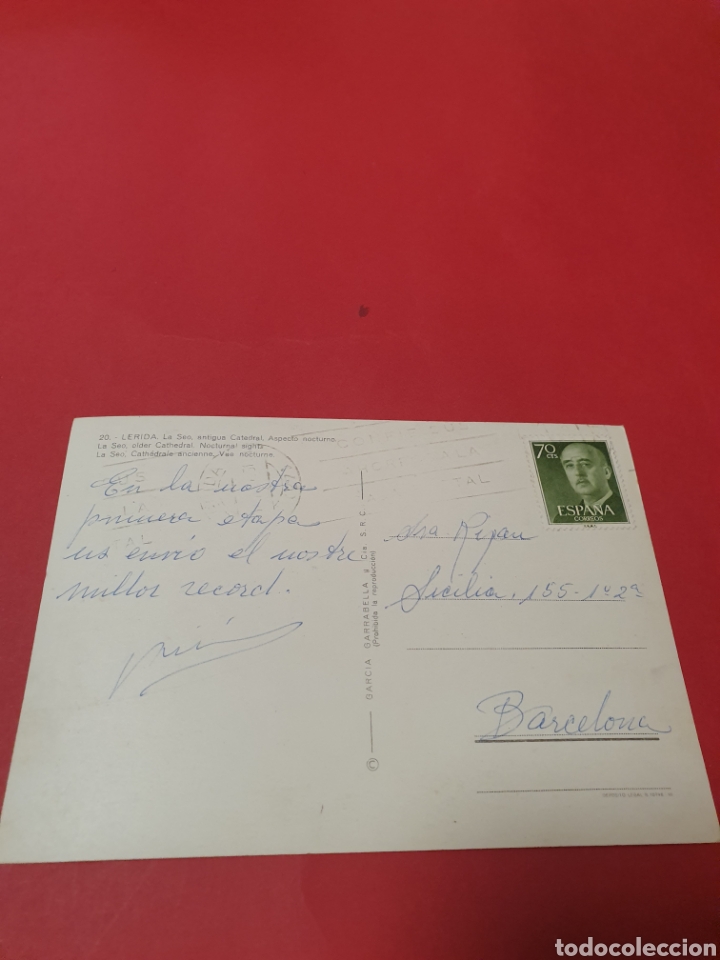 20. - LERIDA. La Seo, antigua Catedral. Aspecto nocturno
La Seo, older Cathedral. Nocturnal sights
La Seo, Cathédrale ancienne. Vue nocturne
En la nostra
primera etapa
us envio el nostre
millor record.
GARCIA GARRABELLA y Cia. S.R.C.
(Prohibida la reproducción)
70 cts
ESPAÑA
CORREOS
Sra
Sicilia, 155-1º 2ª
Barcelona
DEPOSITO LEGAL
todocoleccion